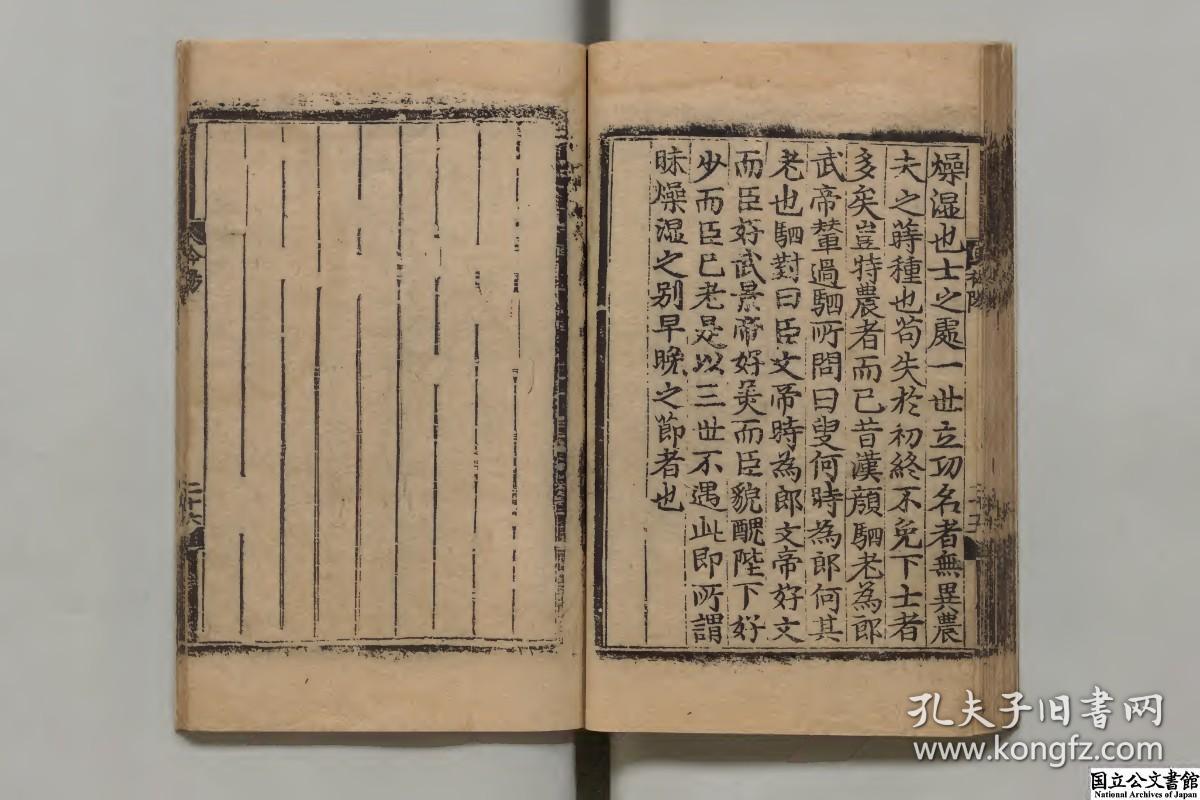 燥湿也士之處一世立功名者無異農
夫之蒔種也苟失於初終不免下士者
多矣豈特農者而已昔漢顔駟老為郎
武帝輦過駟所問曰叟何時為郎何其
老也駟對曰臣文帝時為郎文帝好文
而臣好武景帝好美而臣貌醜陛下好
少而臣已老是以三世不遇此即所謂
昧燥湿之别早晚之節者也
二十六
孔夫子旧书网
www.kongfz.com
国立公文書館
National Archives of Japan